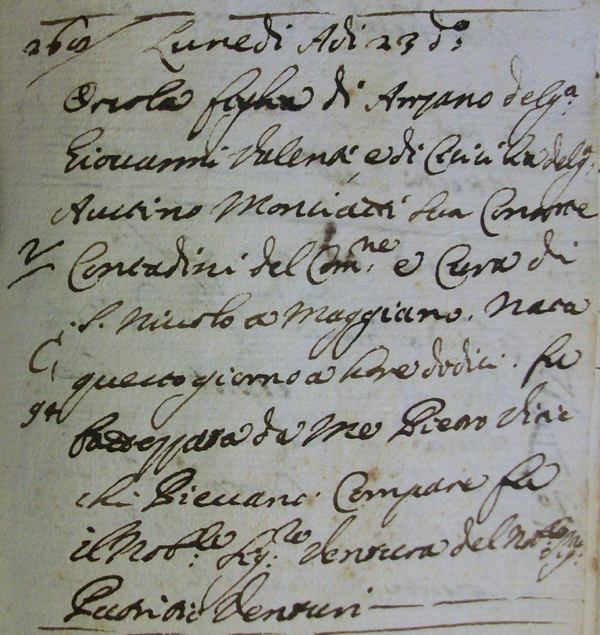 Lunedi Adi 23 do
Orsola figlia di Ansano del qa
Giovanni Valenti e di Cecilia del qa
Austino Monciatti sua Consorte
Contadini del Comne e Cura di
S. Niccolo a Maggiano. Nata
questo giorno a hore dodici. fu
battezzata da Me Pietro Vine
chi Pievano. Compare fu
il Noble Sigre Ventura del Noble Sig.
Patritio Venturi